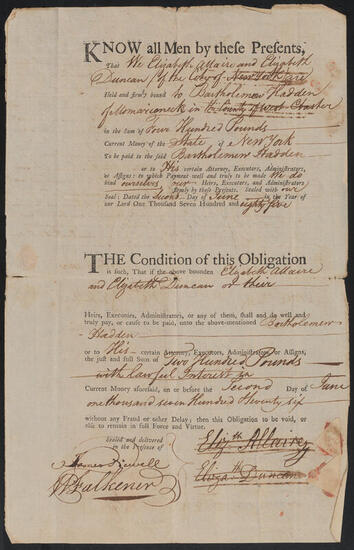 KNOW all Men by these Presents,
That We Elizabeth Allaire and Elizabeth
Duncan of the City of New York are
Held and firmly bound to Bartholomew Hadden
of Mamaroneck in the County of West Chester
in the Sum of Four Hundred Pounds
Current Money of the State of New York
To be paid to the said Bartholomew Hadden
or to His certain Attorney, Executors, Administrators,
or Assigns: to which Payment well and truly to be made We do
bind ourselves our Heirs, Executors, and Administrators
firmly by these Presents. Sealed with our
Seal: Dated the Second Day of June in the Year of
our Lord One Thousand Seven Hundred and eighty five
THE Condition of this Obligation
is such, That if the above bounden Elizabeth Allaire
and Elizabeth Duncan or their
Heirs, Executors, Administrators, or any of them, shall and do well and
truly pay, or cause to be paid, unto the above-mentioned Bartholomew
Hadden
or to His certain Attorney, Executors, Administrators or Assigns,
the just and full Sum of Two Hundred Pounds
with lawful Interest in
Current Money aforesaid, on or before the Second Day of June
one thousand seven Hundred Seventy six
without any Fraud or other Delay; then this Obligation to be void, or
else to remain in full Force and Virtue.
Sealed and delivered
in the Presence of
Eliz.th Allaire
Falkener
Eliza.th Duncan